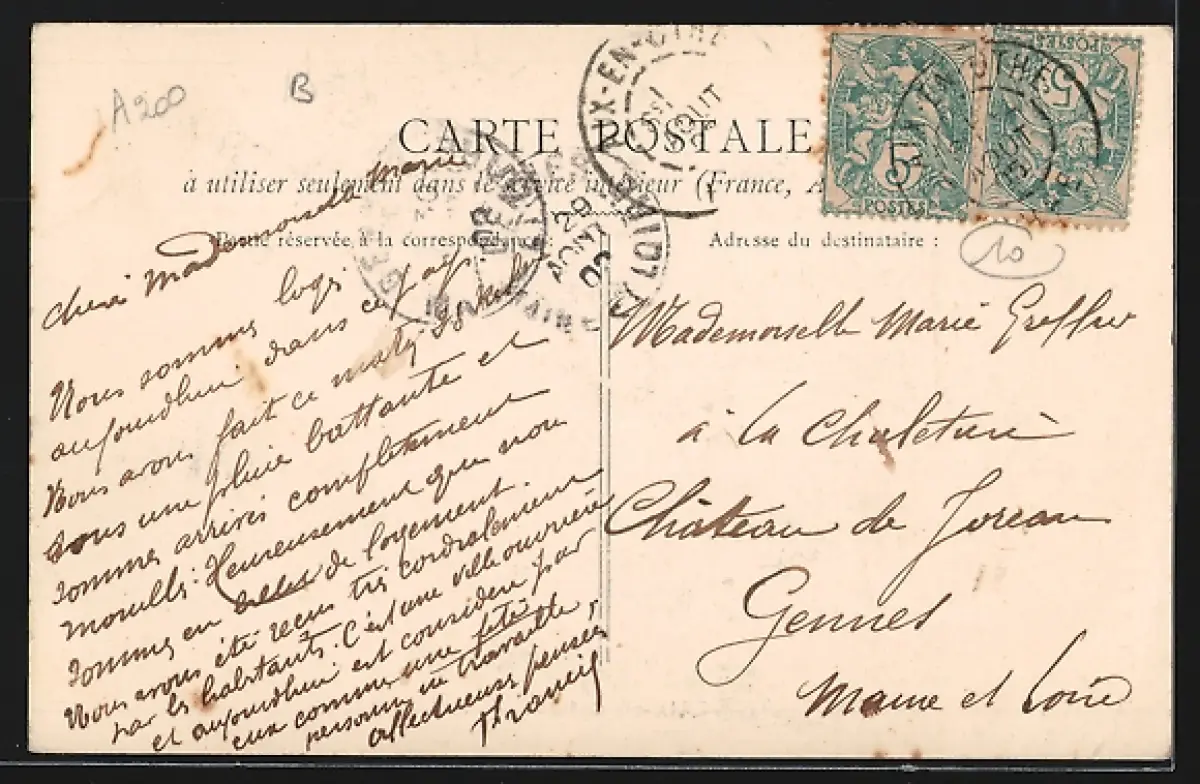 A200
B
CARTE POSTALE
à utiliser seulement dans le service intérieur (France, A
Partie réservée à la correspondance :
Adresse du destinataire :
X-EN-OTHE
POSTES
5
POSTES
5
10
Chère Mademoiselle Marie
Nous sommes logé
aujourdhui dans ce pays.
Nous avons fait ce matin 28
sous une pluie battante et
sommes arrivés complètement
mouillés: Heureusement que nous
sommes en billet de logement.
Nous avons été recus très cordialement
par les habitants. C'est une ville ouvrière
et aujourdhui est considéré par
eux comme une fête
personne ne travaille,
affectueuses pensées
Francis
Mademoiselle Marie
à la
Château de Joreau
Gennes
Maine et Loire